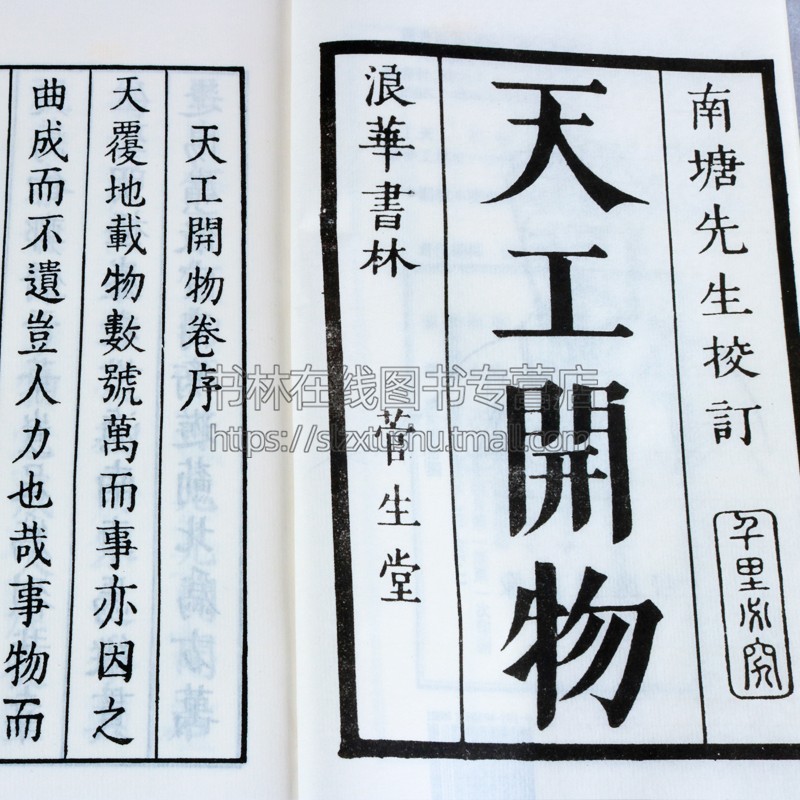 南塘先生校訂
天工開物
浪華書林 菅生堂
天工開物卷序
天覆地載物數號萬而事亦因之
曲成而不遺豈人力也哉事物而
书林在线图书专营店
https://slzxtushu.tmall.com